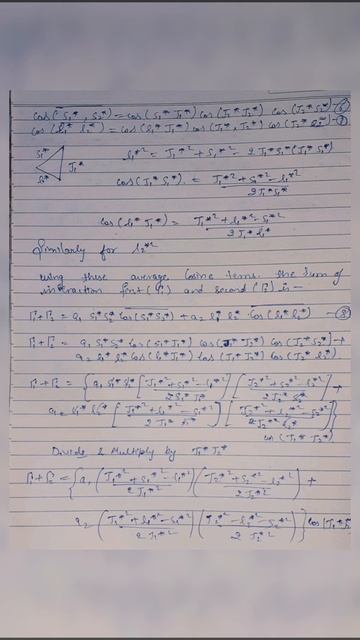 cos(S₁*, S₂*) = cos(S₁* J₁*) cos(J₁* J₂*) cos(J₂* S₂*) —⑥
cos(l₁* l₂*) = cos(l₁* J₁*) cos(J₁*, J₂*) cos(J₂* l₂*) —⑦
S₁*
l₁*² = J₁*² + S₁*² − 2J₁* S₁*(J₁* S₁*)
J₁*
l₁*
cos(J₁* S₁*) = J₁*² + S₁*² − l₁*² / 2J₁* S₁*
cos(l₁* J₁*) = J₁*² + l₁*² − S₁*² / 2J₁* l₁*
Similarly for l₂*²
using these average cosine terms. the sum of
interaction first (Γ₁) and second (Γ₂) is —
Γ₁+Γ₂ = a₁ S₁* S₂* cos(S₁* S₂*) + a₂ l₁* l₂* cos(l₁* l₂*) —⑧
Γ₁+Γ₂ = a₁ S₁* S₂* cos(S₁* J₁*) cos(J₁* J₂*) cos(J₂* S₂*) +
a₂ l₁* l₂* cos(l₁* J₁*) cos(J₁* J₂*) cos(J₂* l₂*)
Γ₁+Γ₂ = {a₁ S₁* S₂* [J₁*² + S₁*² − l₁*² / 2S₁* J₁*] [J₂*² + S₂*² − l₂*² / 2J₂* S₂*] +
a₂ l₁* l₂* [J₁*² + l₁*² − S₁*² / 2J₁* l₁*] [J₂*² + l₂*² − S₂*² / 2J₂* l₂*]}
cos(J₁* J₂*)
Divide & Multiply by J₁* J₂*
Γ₁+Γ₂ = {a₁ (J₁*² + S₁*² − l₁*² / 2J₁*²) (J₂*² + S₂*² − l₂*² / 2J₂*²) +
a₂ (J₁*² + l₁*² − S₁*² / 2J₁*²) (J₂*² − l₂*² − S₂*² / 2J₂*²)} cos(J₁*